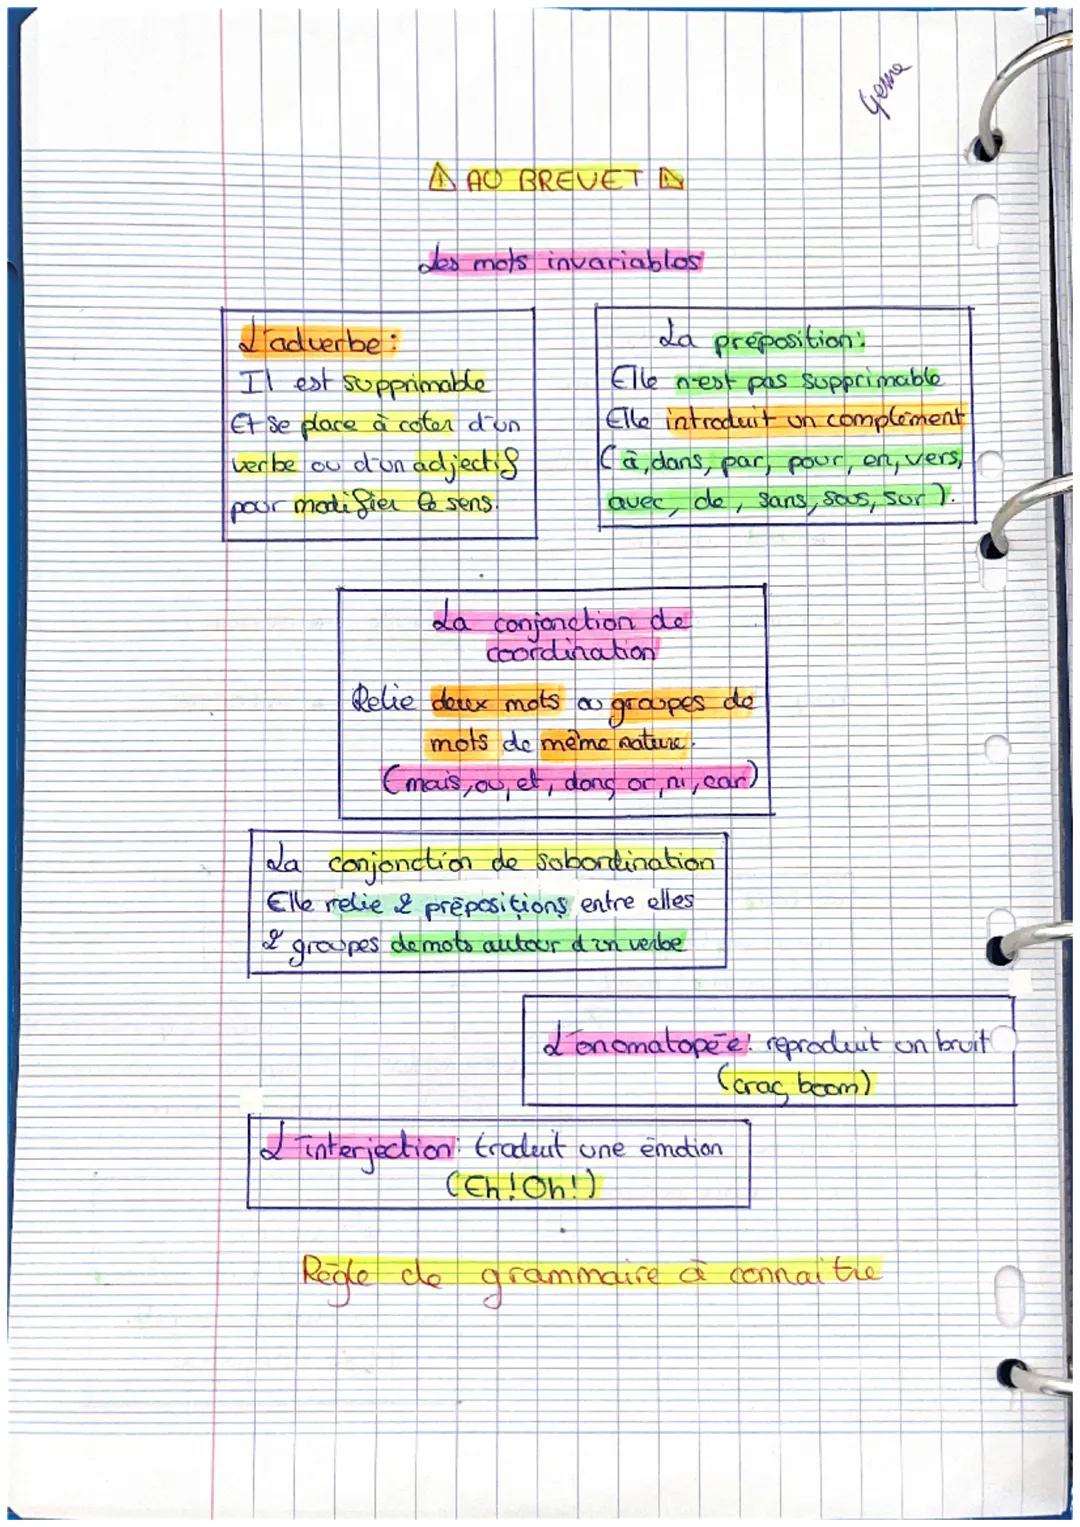 ⚠ AU BREVET ⚠
Les mots invariables
L'adverbe :
Il est supprimable
Et se place à coter d'un
verbe ou d'un adjectif
pour modifier le sens.
La préposition :
Elle n'est pas supprimable
Elle introduit un complément
(à, dans, par, pour, en, vers,
avec, de, sans, sous, sur).
La conjonction de
coordination
Relie deux mots ou groupes de
mots de même nature.
(mais, ou, et, donc, or, ni, car)
La conjonction de subordination
Elle relie 2 prépositions entre elles
2 groupes de mots autour d'un verbe
L'onomatopée : reproduit un bruit
(crac, boom)
L'interjection : traduit une émotion
(Eh! Oh!)
Règle de grammaire à connaitre